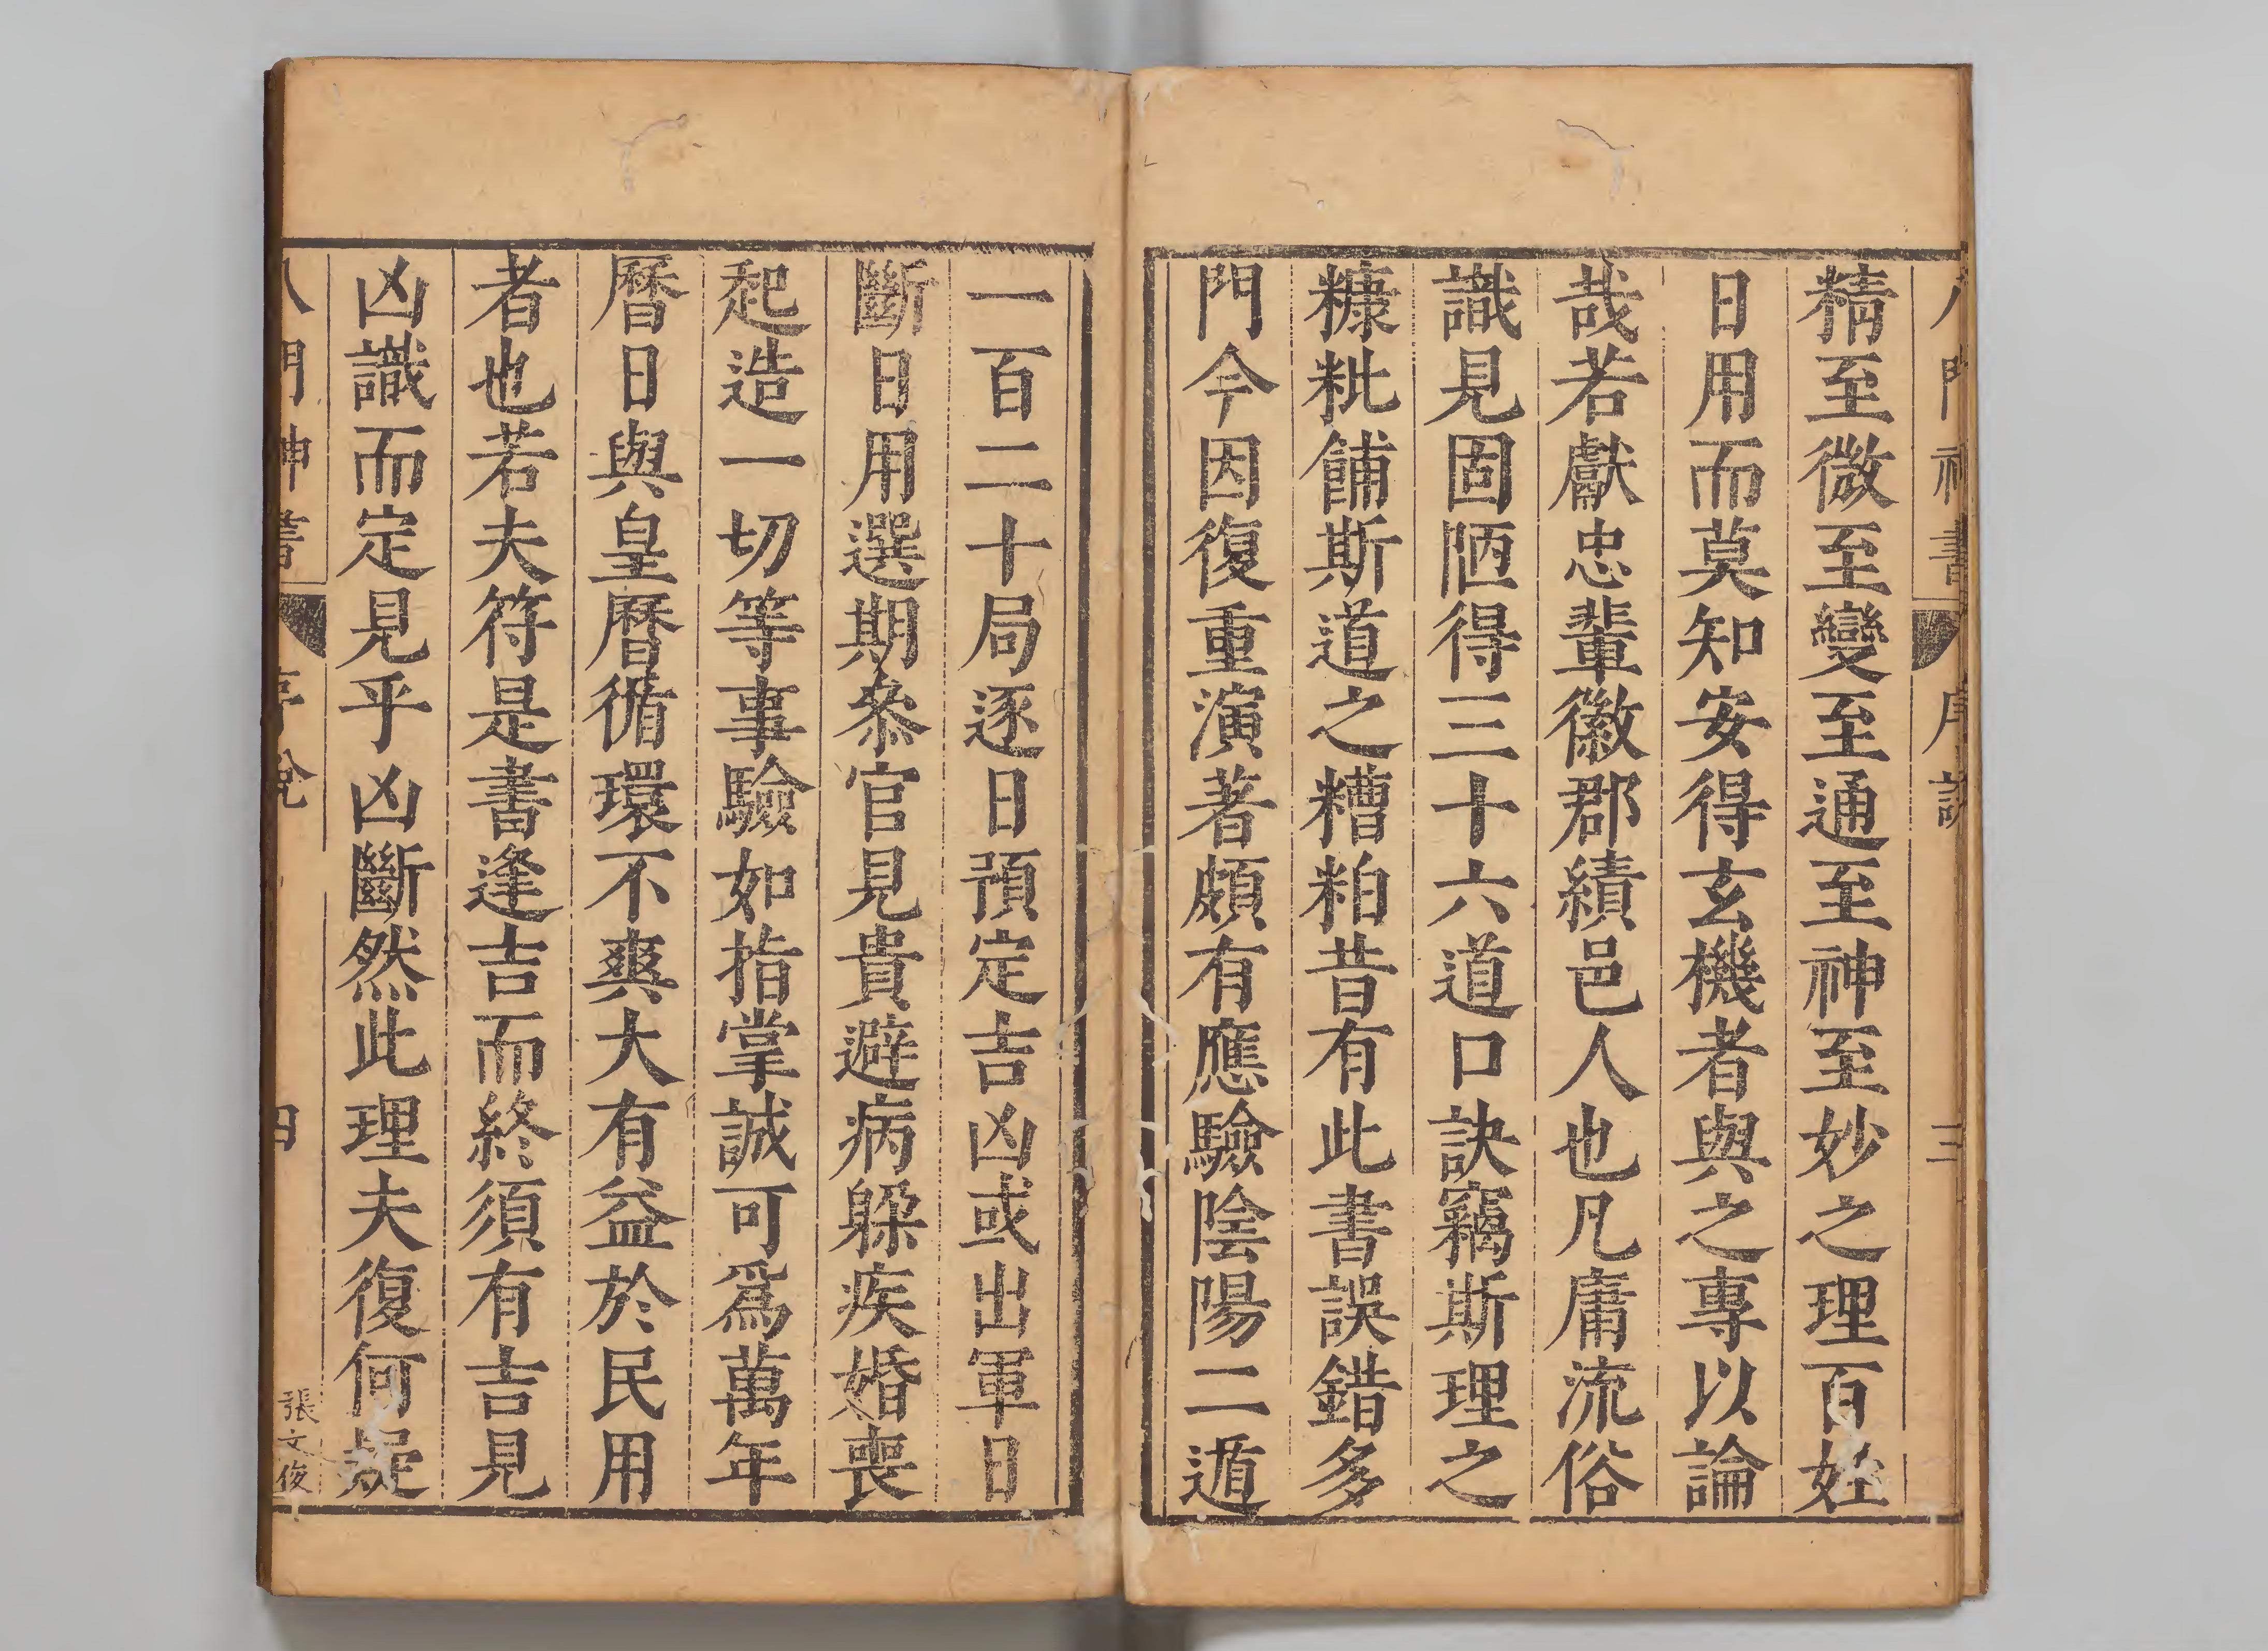 八門神書 序說 三
精至微至變至通至神至妙之理百姓
日用而莫知安得玄機者與之專以論
哉若獻忠輩徽郡績邑人也凡庸流俗
識見固陋得三十六道口訣竊斯理之
糠粃餔斯道之糟粕昔有此書誤錯多
門今因復重演著頗有應驗陰陽二遁
一百二十局逐日預定吉凶或出軍日
斷日用選期叅官見貴避病躲疾婚喪
起造一切等事驗如指掌誠可爲萬年
曆日與皇曆循環不爽大有益於民用
者也若夫符是書逢吉而終須有吉見
凶識而定見乎凶斷然此理夫復何疑
八門神書 序說 四 張文俊